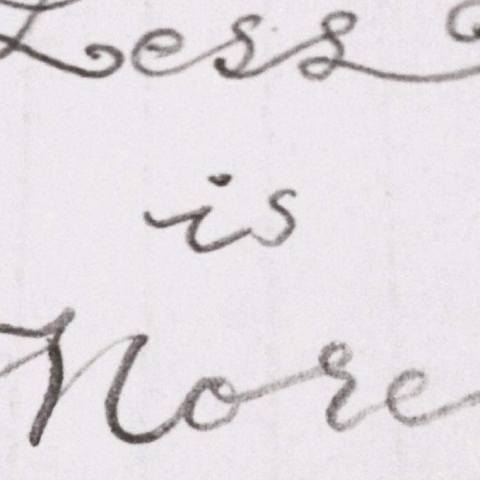 Less
is
More